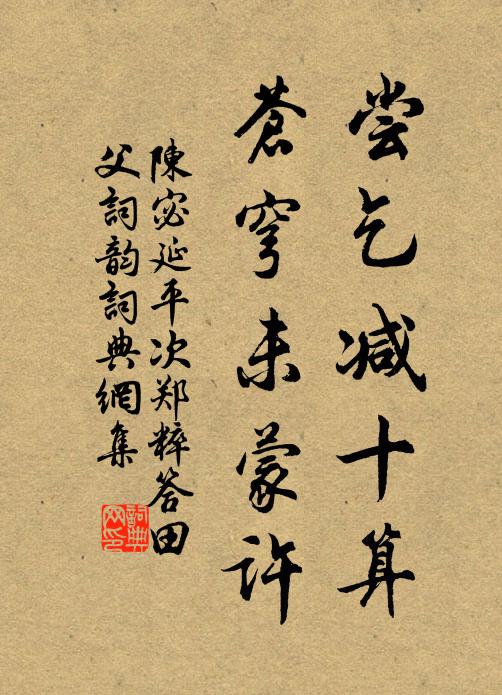 尝乞减十算
蒼穹未蒙許
陳宓延平次郑粹答田
父詞韵詞典網集
詞典网印